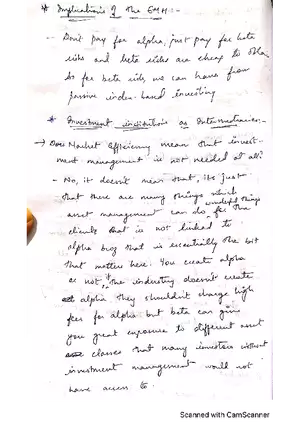 * Implications of the EMH :-
- Don't pay for alpha, just pay for beta
risks and beta risks are cheap to
As for beta risk, we can have from
passive index-based investing
* Investment institutions as Intermediaries:-
→ Does Market Efficiency mean that invest-
ment management is not needed at all?
- No, it doesn't mean that, it's just
that there are many things which
asset management can do wonderful things for the
clients that is not linked to
alpha bcoz that is essentially the bit
that matters here. You create alpha
or not, if the industry doesn't create
alpha they shouldn't charge high
fees for alpha but beta can give
you great exposure to different asset
classes that many investors without
investment management would not
have access to.
Scanned with CamScanner